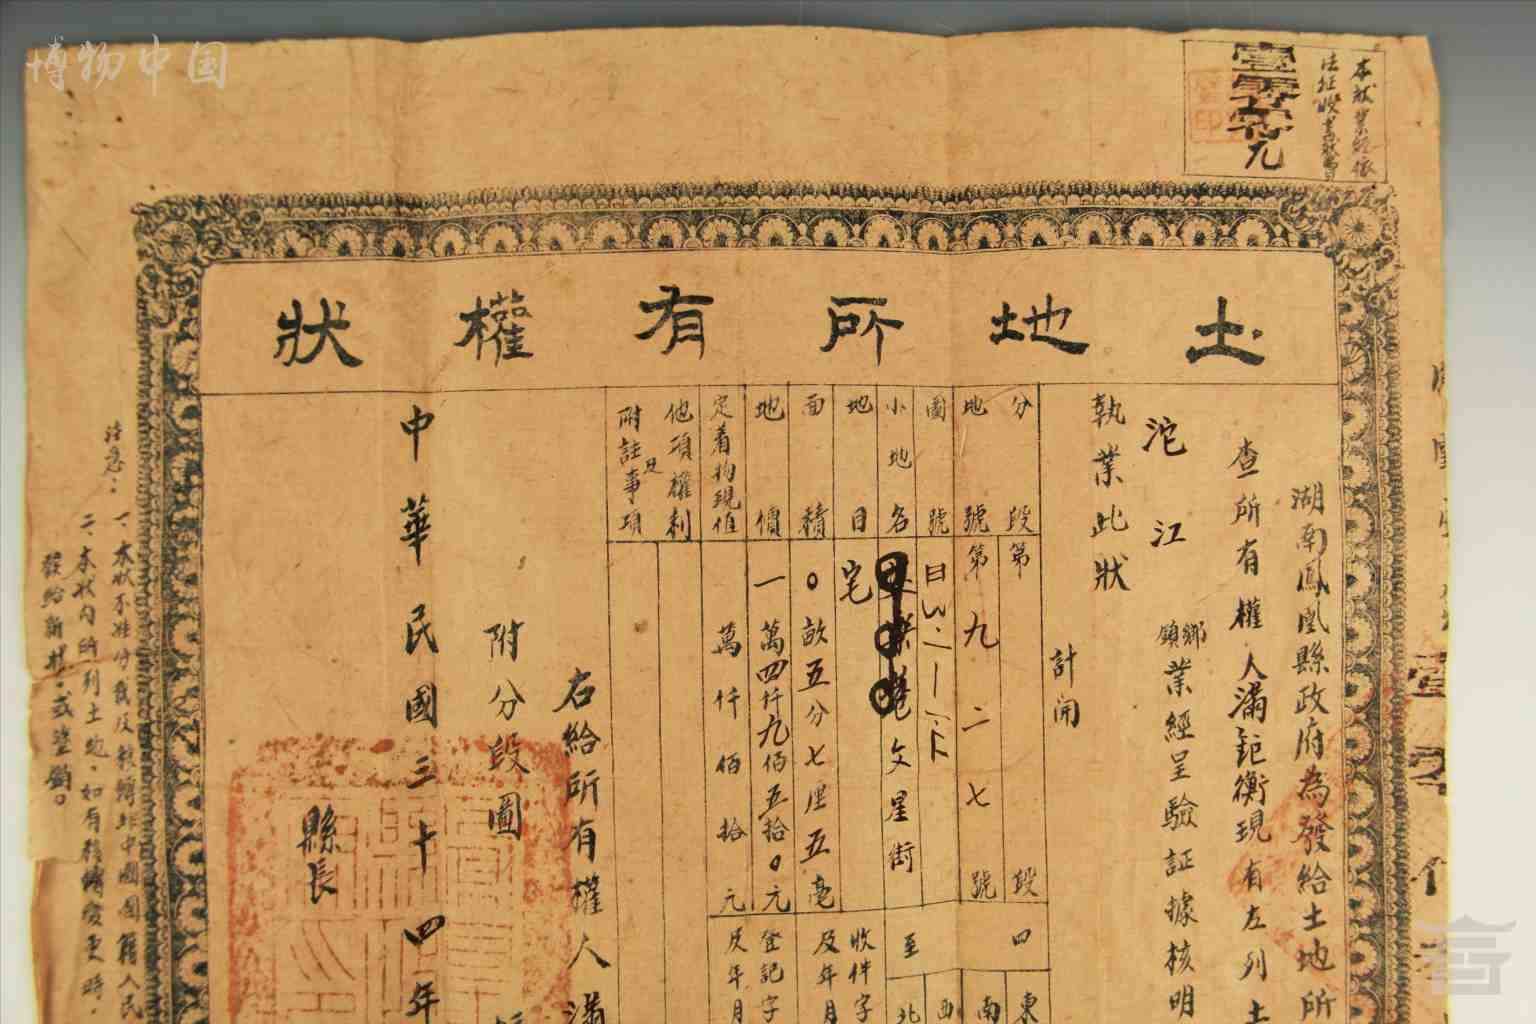 博物中国
本狀業經依
法征收書狀費
壹零零元
土地所有權狀
湖南鳳凰縣政府為發給土地所
查所有權人滿鉅衡現有左列土
沱江
鄉
鎮
業經呈驗証據核明
執業此狀
計開
分段
第段
地號
第九二七號
圖號
小地名
文星街
地目
宅
面積
0畝五分七厘五毫
地價
一萬四仟九佰五拾0元
定着物現值
萬仟佰拾元
他項權利
及
附註事項
四
至
東
南
西
北
收件字
及年月
登記字
及年月
右給所有權人滿
附分段圖
中華民國三十四年
縣長
注意：
一、本狀不准分裁及移轉非中國國籍人民
二、本狀內所列土地，如有移轉變更時，
發給新狀，或塗銷。